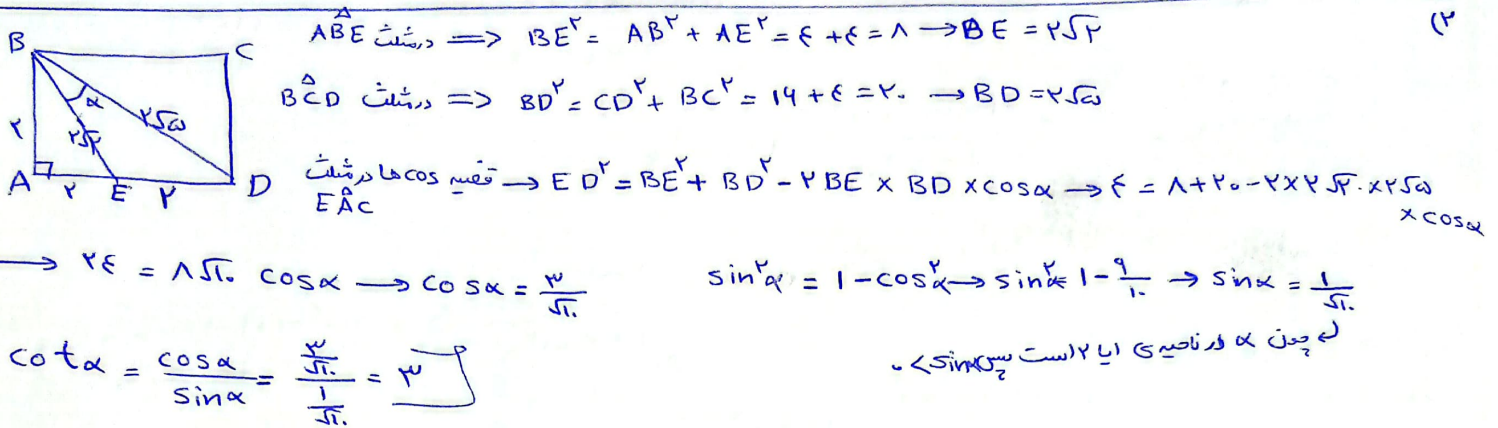 ۲)
در مثلث ABE => BE^۲ = AB^۲ + AE^۲ = ۴ + ۴ = ۸ → BE = ۲√۲
در مثلث BCD => BD^۲ = CD^۲ + BC^۲ = ۱۶ + ۴ = ۲۰ → BD = ۲√۵
قضیه cos ها در مثلث EAC → ED^۲ = BE^۲ + BD^۲ - ۲ BE × BD × cosα → ۴ = ۸ + ۲۰ - ۲×۲√۲ × ۲√۵
× cosα
→ ۲۴ = ۸√۱۰ cosα → cosα = ۳/√۱۰
sin^۲α = ۱ - cos^۲α → sin^۲α = ۱ - ۹/۱۰ → sinα = ۱/√۱۰
چون α در ناحیه‌ی ۱ یا ۲ است پس sinα > ۰
cotα = cosα/sinα = (۳/√۱۰)/(۱/√۱۰) = ۳
B
C
α
۲√۵
۲√۲
۲
A
۲
E
۲
D